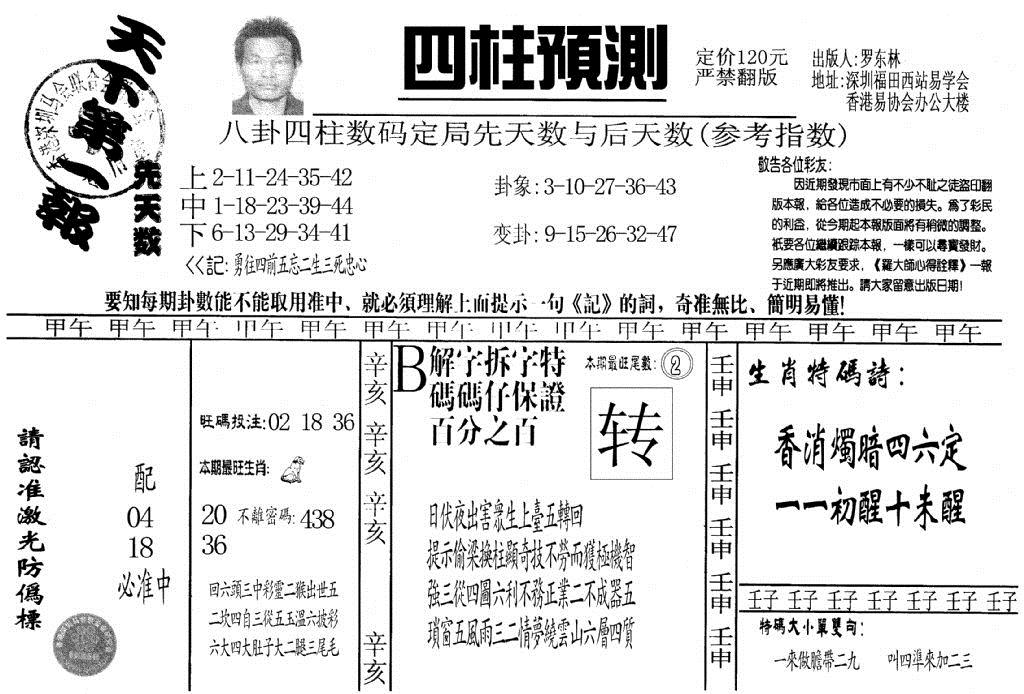 天下第一報
四柱預測
定价120元
严禁翻版
出版人:罗东林
地址:深圳福田西站易学会
香港易协会办公大楼
八卦四柱数码定局先天数与后天数(参考指数)
先天数
上 2-11-24-35-42
中 1-18-23-39-44
下 6-13-29-34-41
<<記:勇往四前五忘二生三死忠心
卦象:3-10-27-36-43
变卦:9-15-26-32-47
敬告各位彩友:
因近期發現市面上有不少不耻之徒盜印翻
版本報,給各位造成不必要的損失。爲了彩民
的利益,從今期起本報版面將有稍微的調整。
衹要各位繼續跟踪本報,一樣可以尋寶發財。
另應廣大彩友要求,《羅大師心得詮釋》一報
于近期即將推出。請大家留意出版日期!
要知每期卦數能不能取用准中、就必須理解上面提示一句《記》的詞,奇准無比、簡明易懂!
甲午 甲午 甲午 甲午 甲午 甲午 甲午 甲午 甲午 甲午 甲午 甲午 甲午 甲午 甲午
請認准激光防僞標
配
04
18
必准中
旺碼投注:02 18 36
本期最旺生肖:
20 不離密碼:438
36
回六頭三中彩靈二猴出世五
二坎四自三從五玉溫六披彩
六大四大肚子龍二腿三尾毛
辛亥 辛亥 辛亥 辛亥
B 解字拆字特
碼碼仔保證
百分之百
本期最旺尾數:2
转
日伏夜出害衆生上臺五轉回
提示偷梁換柱顯奇技不勞而獲極機智
強三從四圖六利不務正業二不成器五
瑣窗五風雨三二情夢繞雲山六層四質
壬申 壬申 壬申 壬申 壬申 壬申
生肖特碼詩:
香消燭暗四六定
一一初醒十未醒
壬子 壬子 壬子 壬子 壬子 壬子 壬子
特碼大小單雙句:
一來做膽帶二九 叫四準來加二三